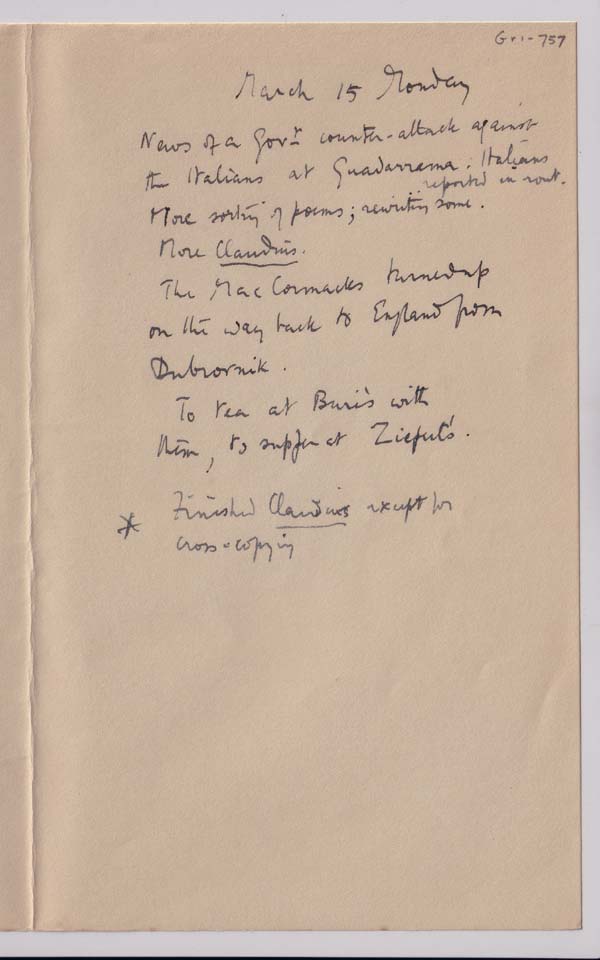 Gri-757
March 15 Monday
News of a Govt counter-attack against
the Italians at Guadarrama: Italians
reported in rout.
More sorting of poems; rewriting some.
More Claudius.
The MacCormacks turned up
on the way back to England from
Dubrovnik.
To tea at Buri's with
them, to supper at
* Finished Claudius except for
cross-copying